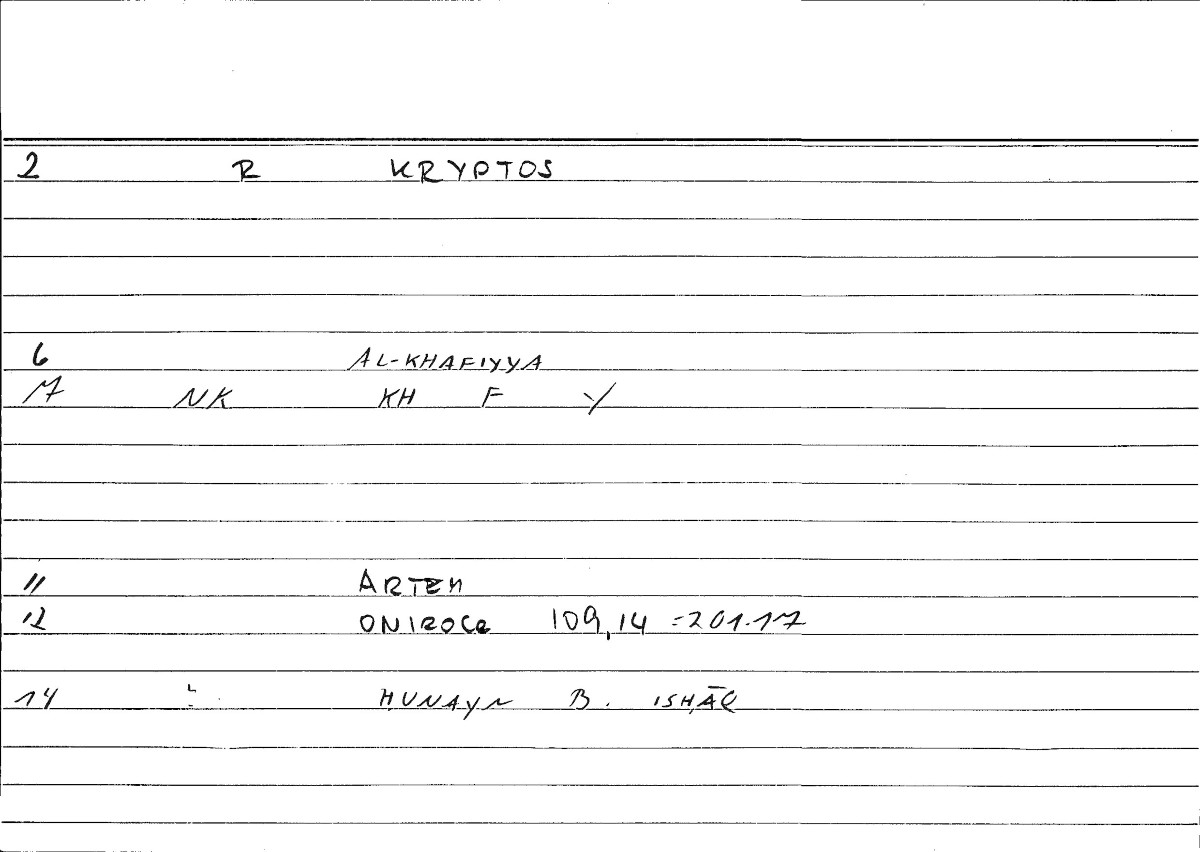 2 R KRYPTOS
6 AL-KHAFIYYA
7 NK KH F Y
11 ARTEM
12 ONIROCR 109,14 =201.17
14 ḤUNAYN B. ISḤĀQ